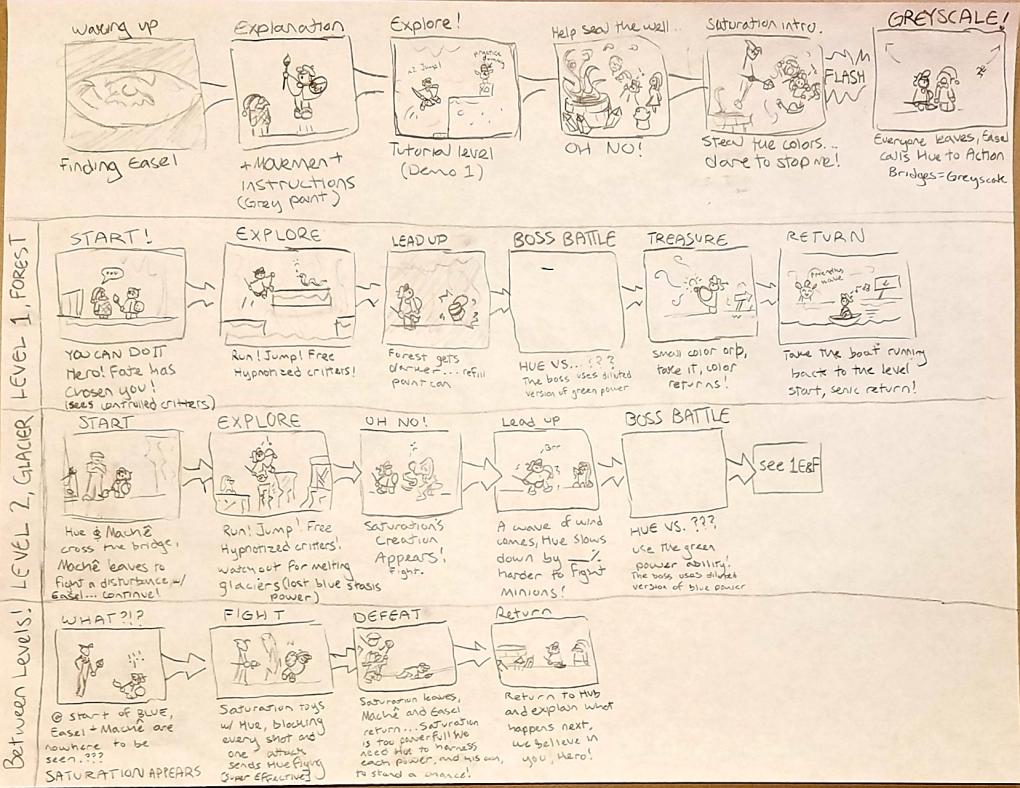 Waking up
Finding Easel
Explanation
+ Movement +
instructions
(Grey paint)
Explore!
x2 Jump!
practice
dummy
Tutorial level
(Demo 1)
Help seal the well...
OH NO!
Saturation intro.
Steal the colors...
dare to stop me!
FLASH
GREYSCALE!
Everyone leaves, Easel
calls Hue to Action
Bridges=Greyscale
LEVEL 1, FOREST
START!
YOU CAN DO IT
Hero! Fate has
Chosen you!
(sees controlled critters)
EXPLORE
Run! Jump! Free
Hypnotized critters!
LEAD UP
Forest gets
darker... refill
paint can
BOSS BATTLE
HUE VS... ???
The boss uses diluted
version of green power
TREASURE
small color orb,
take it, color
returns!
RETURN
Take the boat running
back to the level
start, senic return!
LEVEL 2, GLACIER
START
Hue & Machê
cross the bridge,
Machê leaves to
fight a disturbance w/
Easel... continue!
EXPLORE
Run! Jump! Free
Hypnotized critters!
watch out for melting
glaciers (lost blue stasis
power)
OH NO!
Saturation's
Creation
Appears!
Fight.
Lead up
Brr
A wave of wind
comes, Hue slows
down by __%
harder to fight
Minions!
BOSS BATTLE
HUE VS. ???
use the green
power ability!
The boss uses diluted
version of blue power
see 1E&F
Between Levels!
WHAT?!?
@ start of BLUE,
Easel + Machê are
nowhere to be
seen.???
SATURATION APPEARS
FIGHT
Saturation toys
w/ Hue, blocking
every shot and
one attack
sends Hue flying
(Super Effective)
DEFEAT
Saturation leaves,
Machê and Easel
return... Saturation
is too powerful! We
need Hue to harness
each power, and his own,
to stand a chance!
Return
Return to HUB
and explain what
happens next,
we believe in
you, Hero!